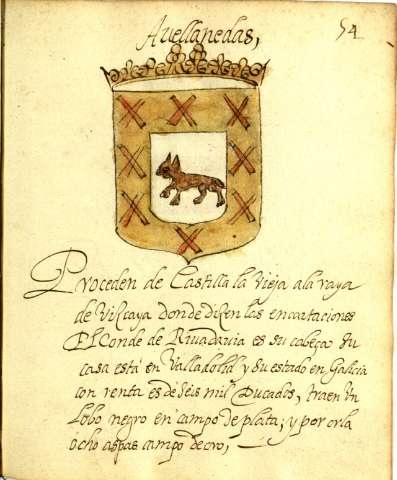 Avellanedas,
54
Proceden de Castilla la vieja ala raya
de Vizcaya donde dizen las encartaciones
El Conde de Riuadauia es su cabeça Su
casa està en Valladolid y Su estado en Galicia
con renta es de Seis mil Ducados, traen Un
Lobo negro en campo de plata; y por orla
ocho aspas campo de oro,